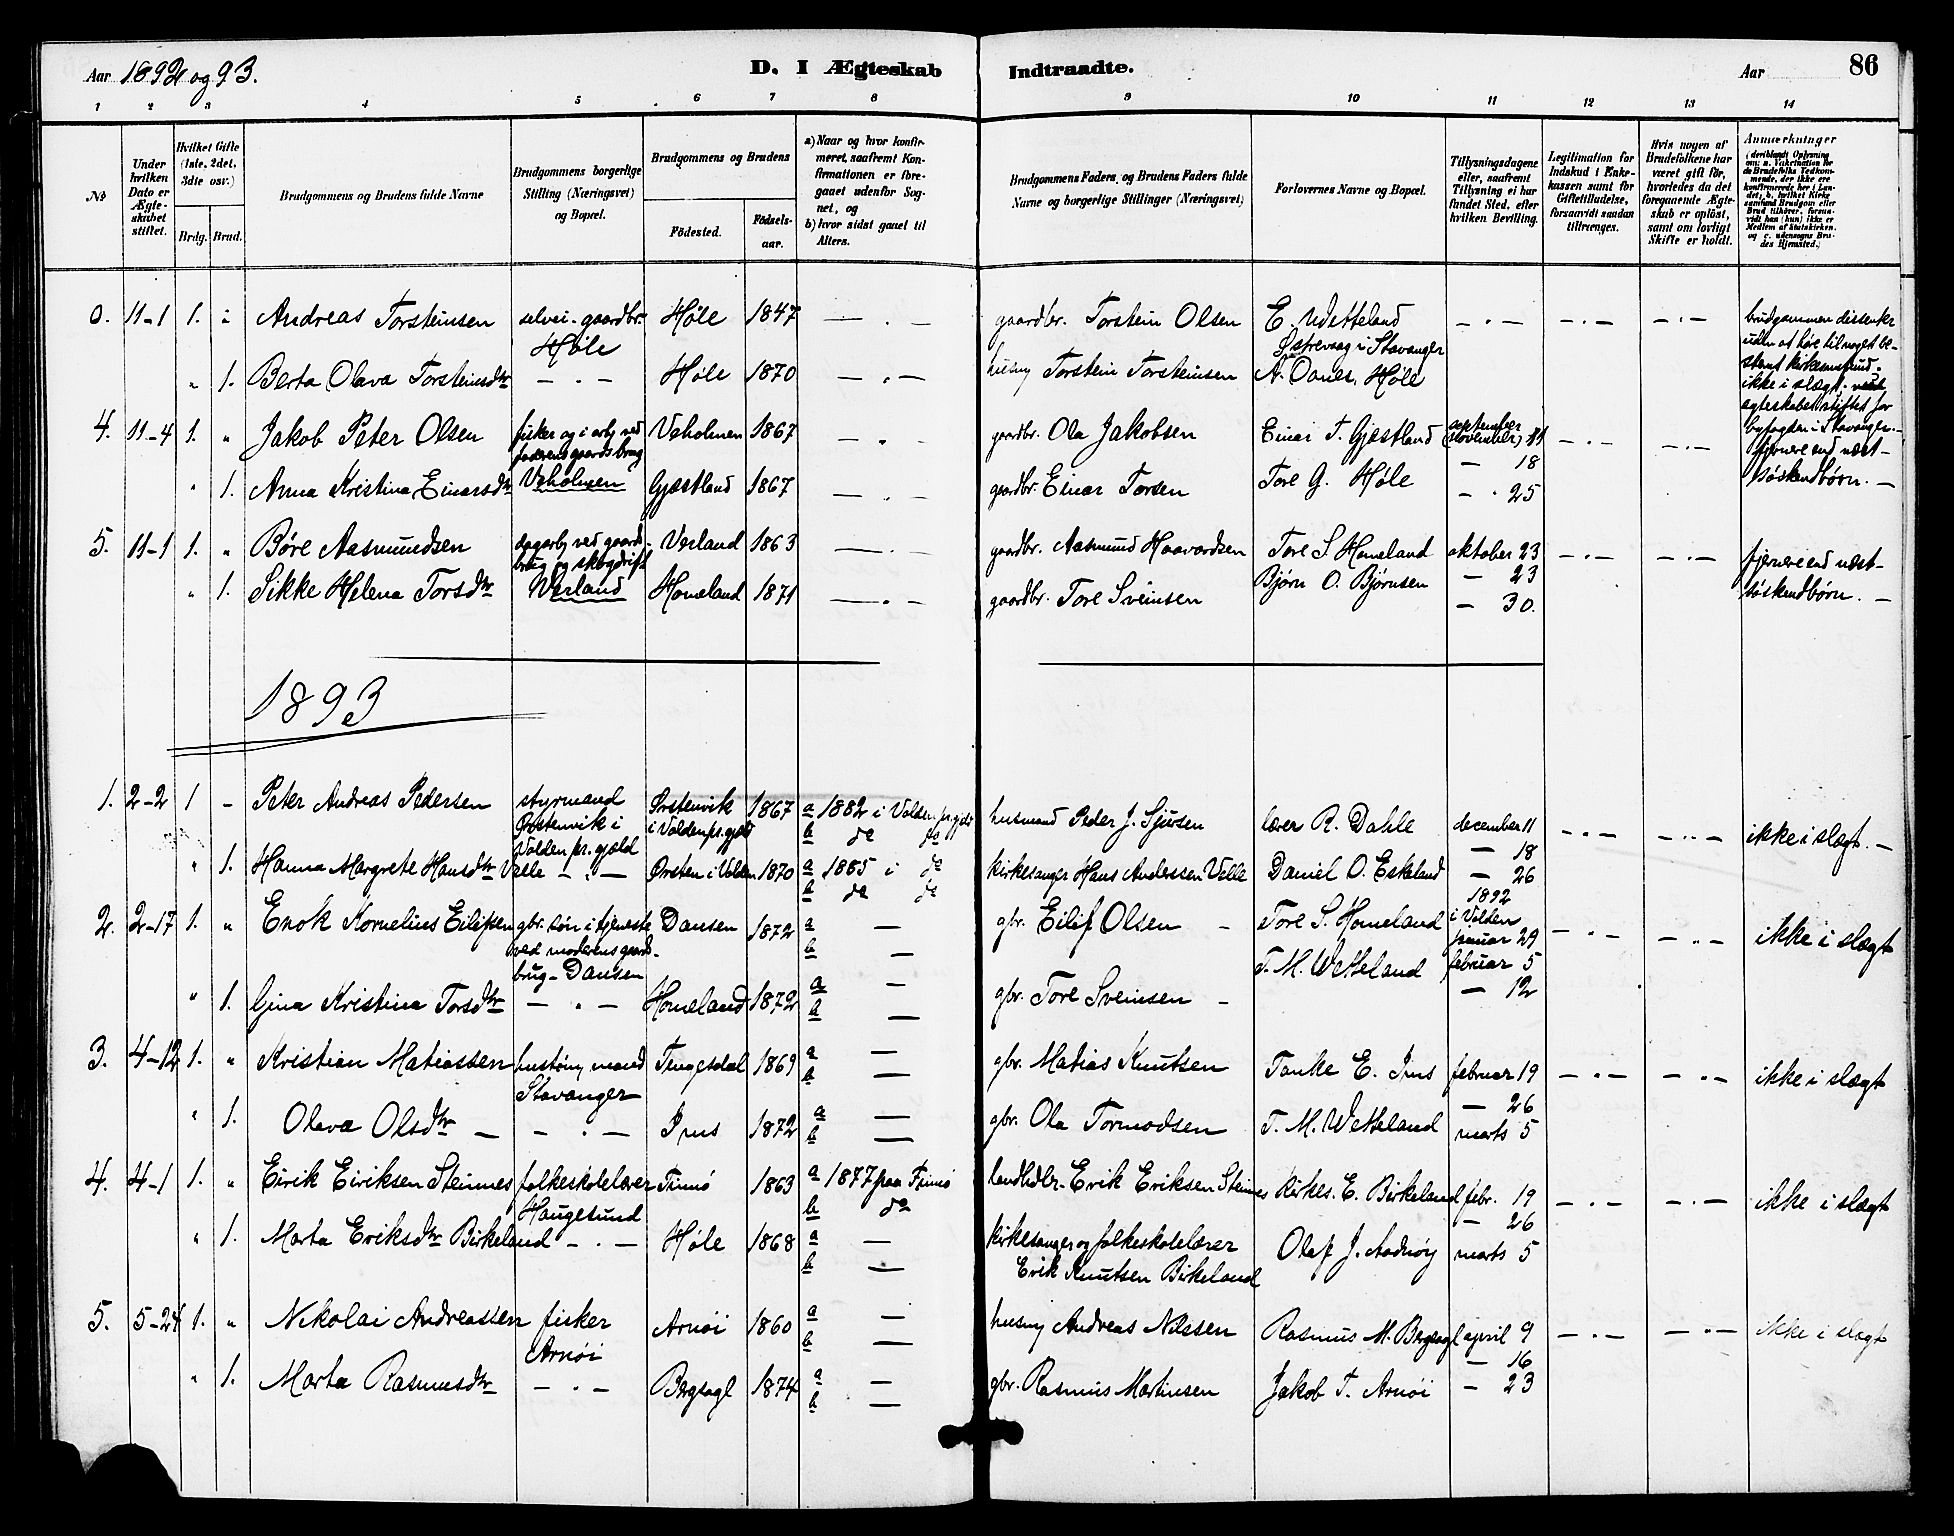 Aar 1892 og 93.
D. I Ægteskab Indtraadte.
Aar
86
1 2 3 4 5 6 7 8 9 10 11 12 13 14
No
Under hvilken Dato er Ægteskabet stiftet.
Hvilket Gifte (1ste, 2det, 3die osv.)
Brdg. Brud.
Brudgommens og Brudens fulde Navne
Brudgommens borgerlige Stilling (Næringsvei) og Bopæl.
Brudgommens og Brudens
Fødested.
Fødselsaar.
a) Naar og hvor konfirmeret, saafremt Konfirmationen er foregaaet udenfor Sognet, og
b) hvor sidst gaaet til Alters.
Brudgommens Faders og Brudens Faders fulde Navne og borgerlige Stillinger (Næringsvei)
Forlovernes Navne og Bopæl.
Tillysningsdagene eller, saafremt Tillysning ei har fundet Sted, efter hvilken Bevilling.
Legitimation for Indskud i Enkekassen samt for Giftetilladelse, forsaavidt saadan tiltrænges.
Hvis nogen af Brudefolkene har været gift før, hvorledes da det foregaaende Ægteskab er opløst, samt om lovligt Skifte er holdt.
Anmærkninger
(deriblandt Oplysning om: a. Vakcination for de Brudefolks Vedkommende, der ikke ere konfirmerede her i Landet; b. hvilket Kirkesamfund Brudgom eller Brud tilhører, forsaavidt han (hun) ikke er Medlem af Statskirken, og c. udensogns Brudes Hjemsted.)
0. 11-1 1. Andreas Torsteinsen selvei-gaardbr. Høle Høle 1847 — . — gaardbr. Torstein Olsen E. Wetteland Østrevaag i Stavanger — " — — . — — . — brudgommen dissenter uden at høre til noget bestemt kirkesamfund. ikke i slægt.
" 1. Berta Olava Torsteinsdtr — . — Høle 1870 — . — husmd Torstein Torsteinsen A. Oanes, Høle ægteskabet stiftet for byfogden i Stavanger.
4. 11-4 1. " Jakob Peter Olsen fisker og i arb. ved faderens gaardsbrug Veholmen Veholmen 1867 — . — gaardbr. Ola Jakobsen Einar T. Gjestland september (november) 11 — . — — . — fjernere end næst-
— 18
" 1. Anna Kristina Einarsdtr Gjestland 1867 — . — gaardbr. Einar Torsen Tore G. Høle — " 25 søskendbørn. —
5. 11-1 1. " Børe Aasmundsen dagarb. ved gaardsbrug og skogdrift Verland Verland 1863 — . — gaardbr. Aasmund Haavardsen Tore S. Homeland oktober 23 — . — — . — fjernere end næst-
— 23
" 1. Sikke Helena Torsdtr Homeland 1871 — . — gaardbr. Tore Sveinsen Bjørn O. Bjørnsen — 30. søskendbørn. —
1893
1. 2-2 1 - Peter Andreas Pedersen styrmand Ørstenvik i Volden pr.gjæld Ørstenvik i Volden pr.gjæld 1867 a 1882 i Volden pr.gjæld b do do husmand Peder J. Sjursen lærer R. Dahle december 11 — . — — . — ikke i slægt. —
— 18
" 1. Hanna Margrete Hansdtr Velle — . — Ørsten i Volden 1870 a 1885 i do b do do kirkesanger Hans Anderssen Velle Daniel O. Eskeland — 26
1892 i Volden
2. 2-17 1. " Enok Kornelius Eilifsen gbr. søn i tjeneste ved moderens gaardsbrug - Dansen Dansen 1872 a — b — gbr. Eilif Olsen - Tore S. Homeland januar 29 — . — — . — ikke i slægt
T. M. Wetteland februar 5
" 1. Gina Kristina Torsdtr — . — Homeland 1872 a — b — gbr. Tore Sveinsen - — 12
3. 4-12 1. " Kristian Matiassen mand Stavanger Tengesdal 1869 a — b — gbr. Matias Knutsen Tanke E. Ims februar 19 — . — — . — ikke i slægt
— 26
" 1. Olava Olsdtr — — . — Ims 1872 a — b — gbr. Ola Tormodsen T. M. Wetteland marts 5
4. 4-1 1. " Eirik Eiriksen Steinnes folkeskolelærer Haugesund Finnø 1863 a 1877 paa Finnø b do Erik Eriksen Steinnes kirkes. E. Birkeland febr. 19 — . — — . — ikke i slægt
— 26
" 1. Marta Eriksdtr Birkeland — . — Høle 1868 a — b — kirkesanger og folkeskolelærer Erik Knutsen Birkeland Olaf J. Aadnøy marts 5
5. 5-24 1. " Nikolai Andreassen fisker Arnøi Arnøi 1860 a — b — husmd Andreas Nilssen Rasmus M. Bergsagl april 9 — . — — . — ikke i slægt
— 16
" 1. Marta Rasmusdtr — . — Bergsagl 1874 a — b — gbr. Rasmus Martinsen Jakob T. Arnøi — 23